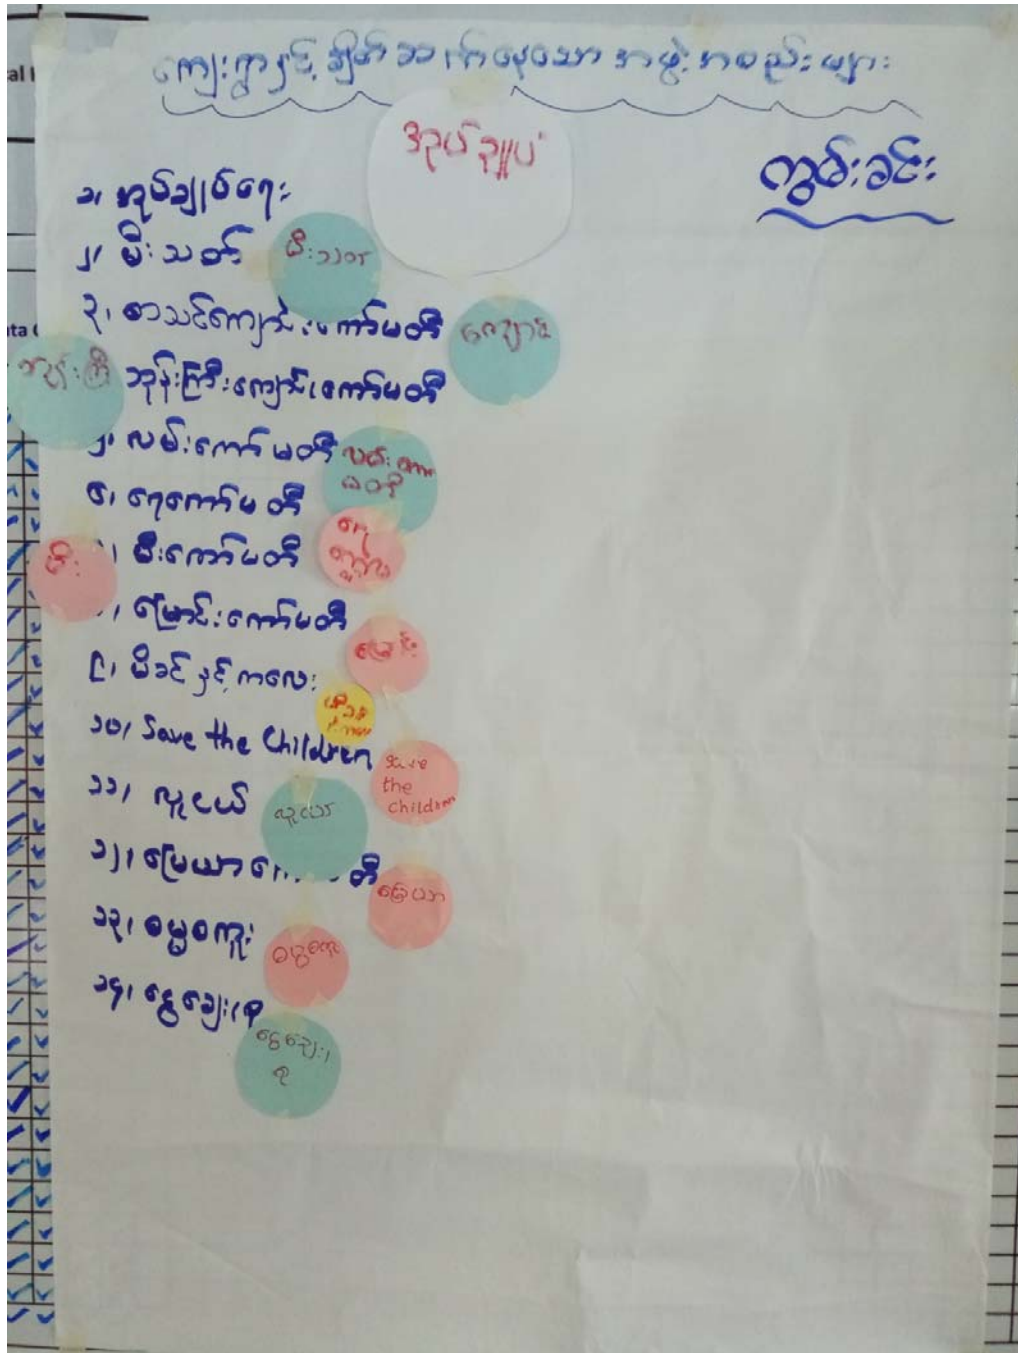 ကျေးရွာနှင့် ချိတ်ဆက်နေသော အဖွဲ့အစည်းများ
ကွမ်းခင်း
အုပ်ချုပ်
၁၊ အုပ်ချုပ်ရေး
၂၊ မီးသတ်
မီးသတ်
၃၊ စာသင်ကျောင်းကော်မတီ
ကျောင်း
ဘုန်းကြီး
ဘုန်းကြီးကျောင်းကော်မတီ
၅၊ လမ်းကော်မတီ
လမ်းကော်မတီ
၆၊ ရေကော်မတီ
ရေ
မီး
မီးကော်မတီ
မြောင်းကော်မတီ
မြောင်း
၉၊ မိခင်နှင့်ကလေး
မိခင်
၁၀၊ Save the Children
Save
the
children
၁၁၊ လူငယ်
လူငယ်
၁၂၊ မြေယာကော်မတီ
မြေယာ
၁၃၊ ဓမ္မစကူး
ဓမ္မစကူး
၁၄၊ ငွေချေး/စု
ငွေချေး/
စု
ata